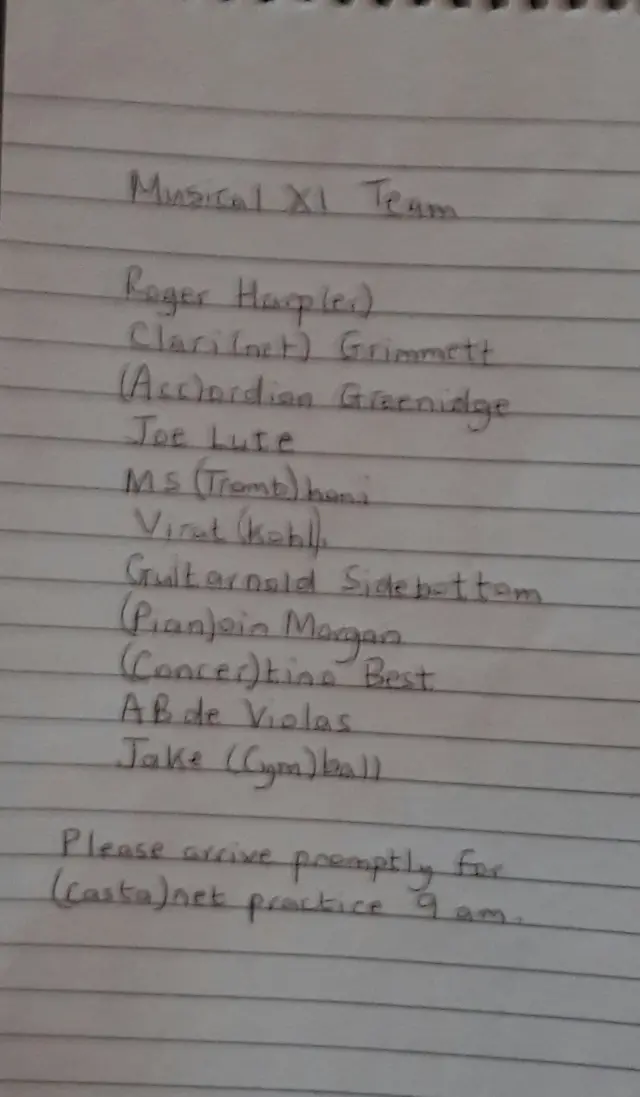 Musical XI Team
Roger Harp(er)
Clari(net) Grimmett
(Acc)ordian Greenidge
Joe Lute
MS (Tromb)honi
Virat (Kohl)i
Guitarnold Sidebottom
(Pian)oin Morgan
(Concer)tino Best
AB de Violas
Jake (Cym)ball
Please arrive promptly for
(casta)net practice 9 am.